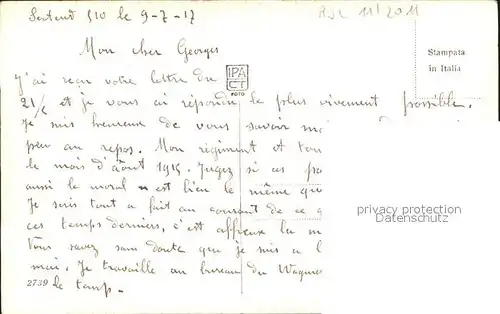 510 le 9-7-17
RJL 11/2011
Mon cher Georges
Stampata
in Italia
IPA
CT
FOTO
J'ai reçu votre lettre du
21/6 et je vous ai répondu le plus vivement possible.
Je suis heureux de vous savoir
peu au repos. Mon régiment et
le mois d'août 1915. Jugez si ces
aussi le moral est bien le même
Je suis tout a fait au courant de ce
ces temps derniers, c'est affreux la
Vous savez sans doute que je suis a
mai. Je travaille au bureau du
2739
le temps.
privacy protection